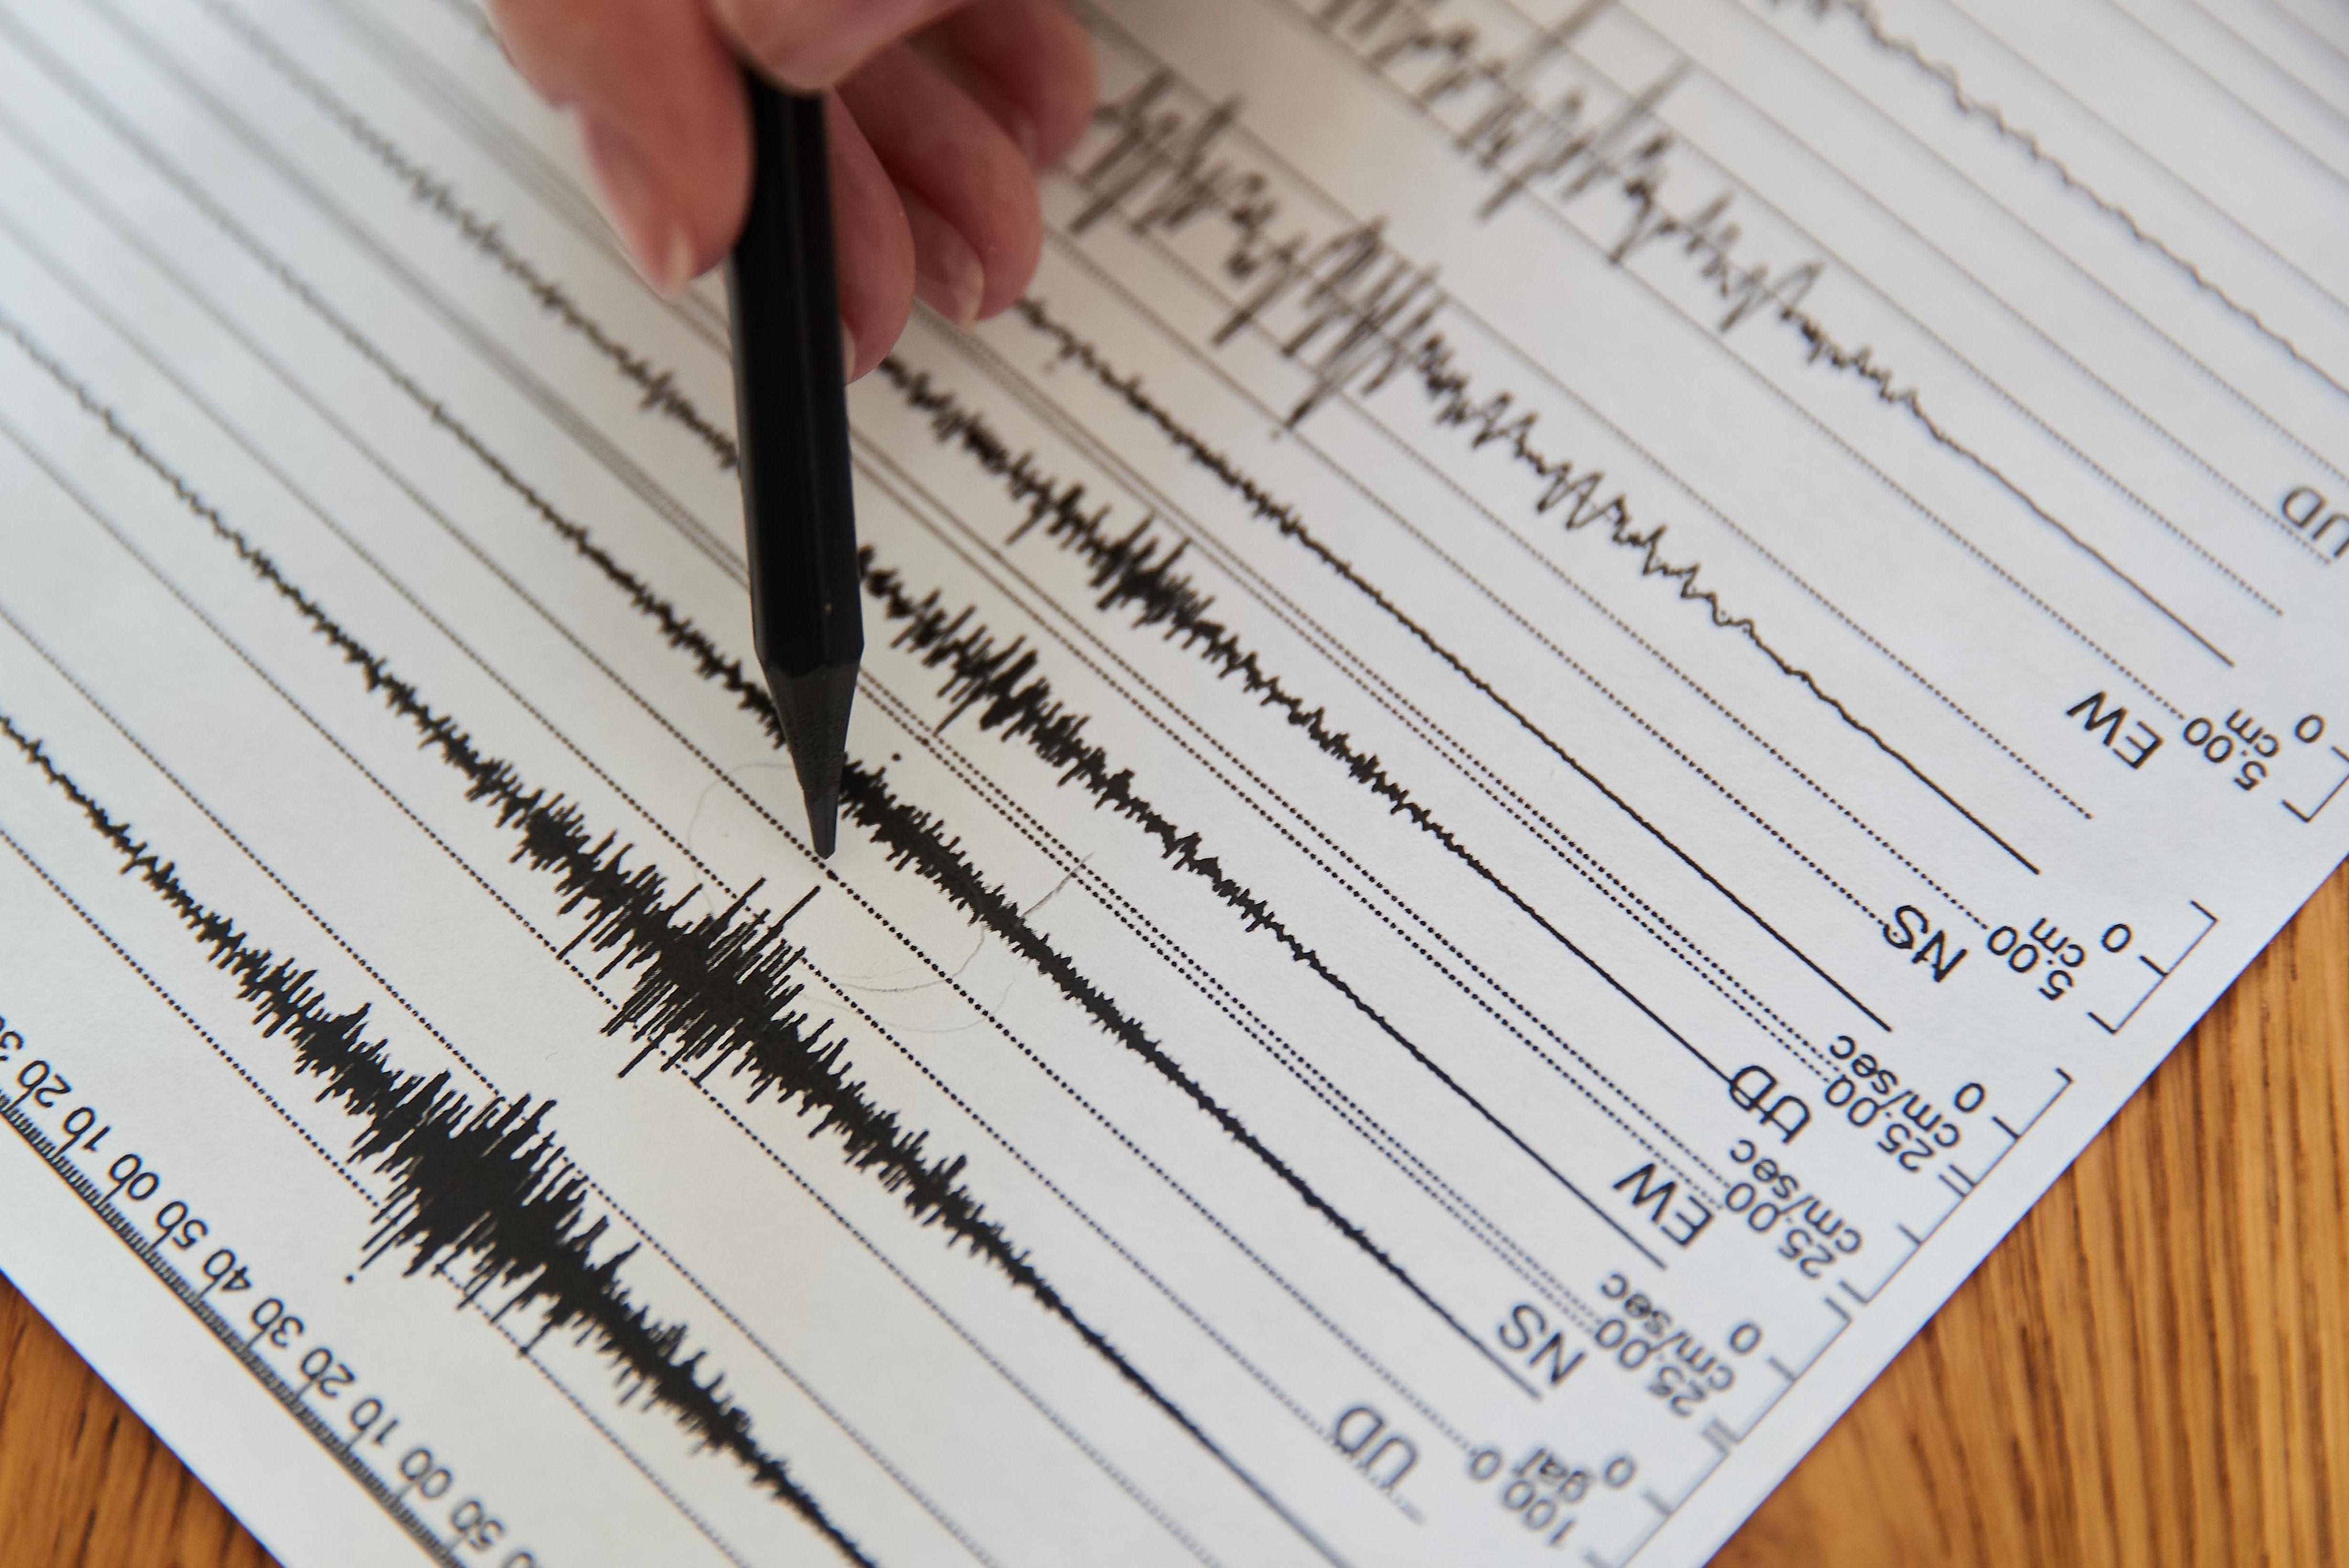 50 00 10 20 30 40 50 00 10 20
100.0
gal
0
UD
25.00
cm/sec
0
NS
25.00
cm/sec
0
EW
25.00
cm/sec
0
UD
5.00
cm
0
NS
5.00
cm
0
EW
UD